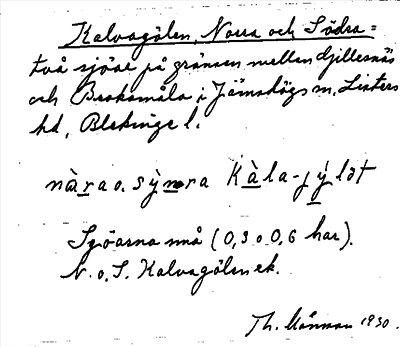 Kalvagölen, Norra och Södra =
två sjöar på gränsen mellan Djillesnäs
och Broksmåla i Jämshögs sn, Listers
hd, Blekinge l.
nàra o. sỳnra Kàla-jýlǝt
Sjöarna små (0,3 o 0,6 har).
N. o. S. Kalvagölen ek.
Th. Månsson 1930.